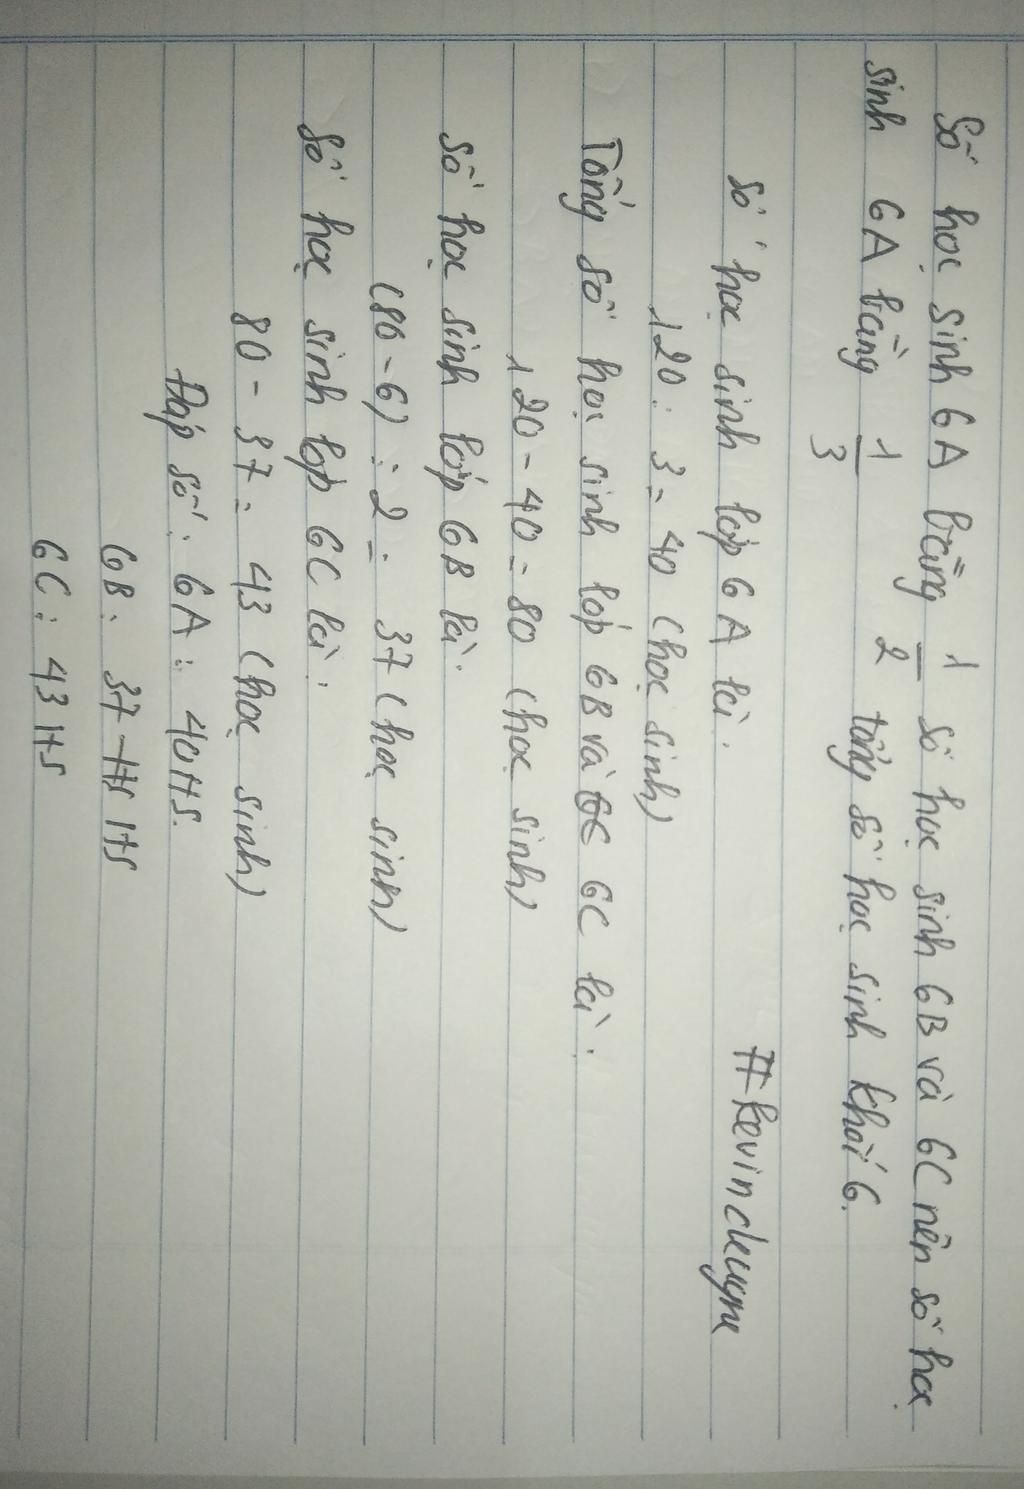 Số học sinh 6A bằng 1/2 số học sinh 6B và 6C nên số học
sinh 6A bằng 1/3 tổng số học sinh khối 6.
Số học sinh lớp 6A là:
#kevindeuyne
120 : 3 = 40 (học sinh)
Tổng số học sinh lớp 6B và 6C 6C là:
120 - 40 = 80 (học sinh)
Số học sinh lớp 6B là:
(80 - 6) : 2 = 37 (học sinh)
Số học sinh lớp 6C là:
80 - 37 = 43 (học sinh)
Đáp số: 6A: 40HS.
6B: 37 HS HS
6C: 43 HS